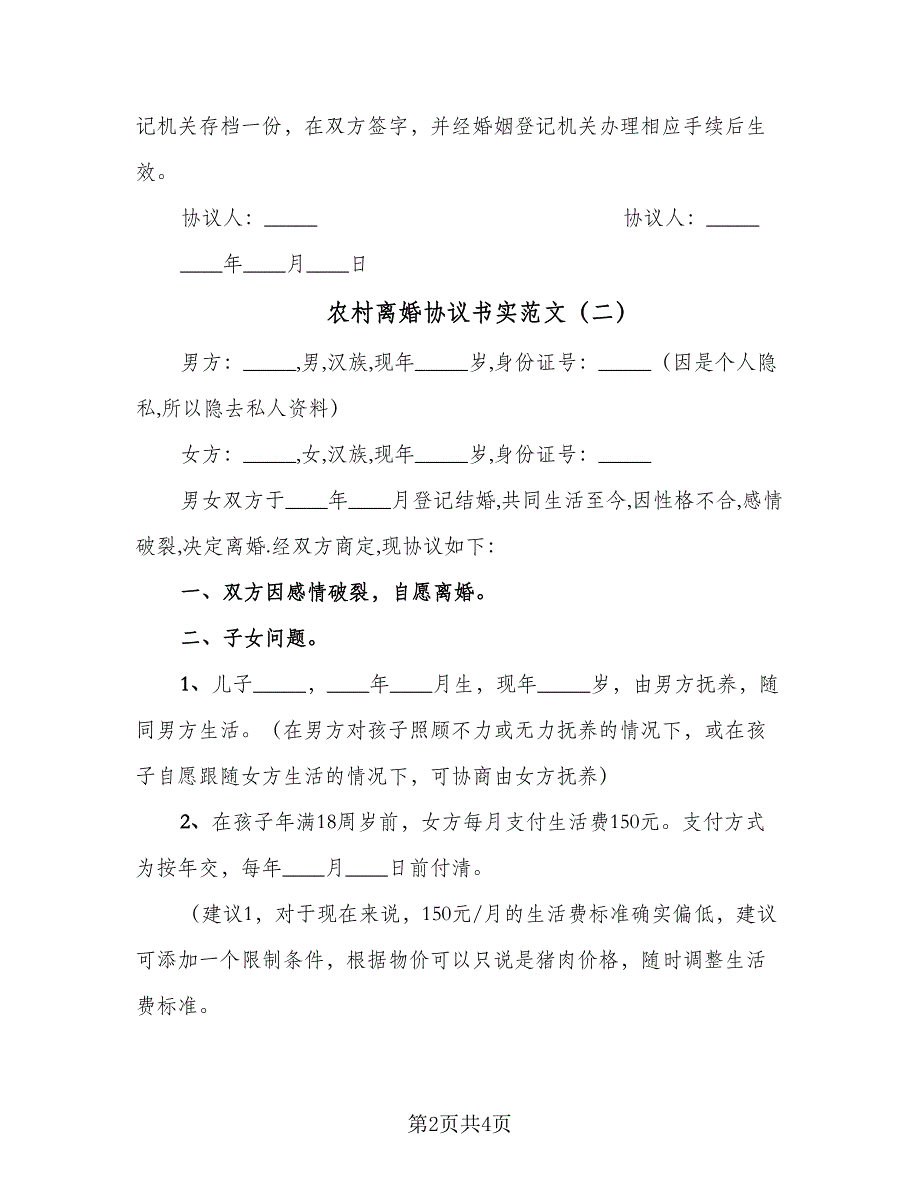 记机关存档一份，在双方签字，并经婚姻登记机关办理相应手续后生
效。
协议人：_____ 协议人：_____
____年____月____日
农村离婚协议书实范文（二）
男方：_____,男,汉族,现年_____岁,身份证号：_____（因是个人隐
私,所以隐去私人资料）
女方：_____,女,汉族,现年_____岁,身份证号：_____
男女双方于____年____月登记结婚,共同生活至今,因性格不合,感情
破裂,决定离婚.经双方商定,现协议如下：
一、双方因感情破裂，自愿离婚。
二、子女问题。
1、儿子_____，____年____月生，现年_____岁，由男方抚养，随
同男方生活。（在男方对孩子照顾不力或无力抚养的情况下，或在孩
子自愿跟随女方生活的情况下，可协商由女方抚养）
2、在孩子年满18周岁前，女方每月支付生活费150元。支付方式
为按年交，每年____月____日前付清。
（建议1，对于现在来说，150元/月的生活费标准确实偏低，建议
可添加一个限制条件，根据物价可以只说是猪肉价格，随时调整生活
费标准。
第2页共4页